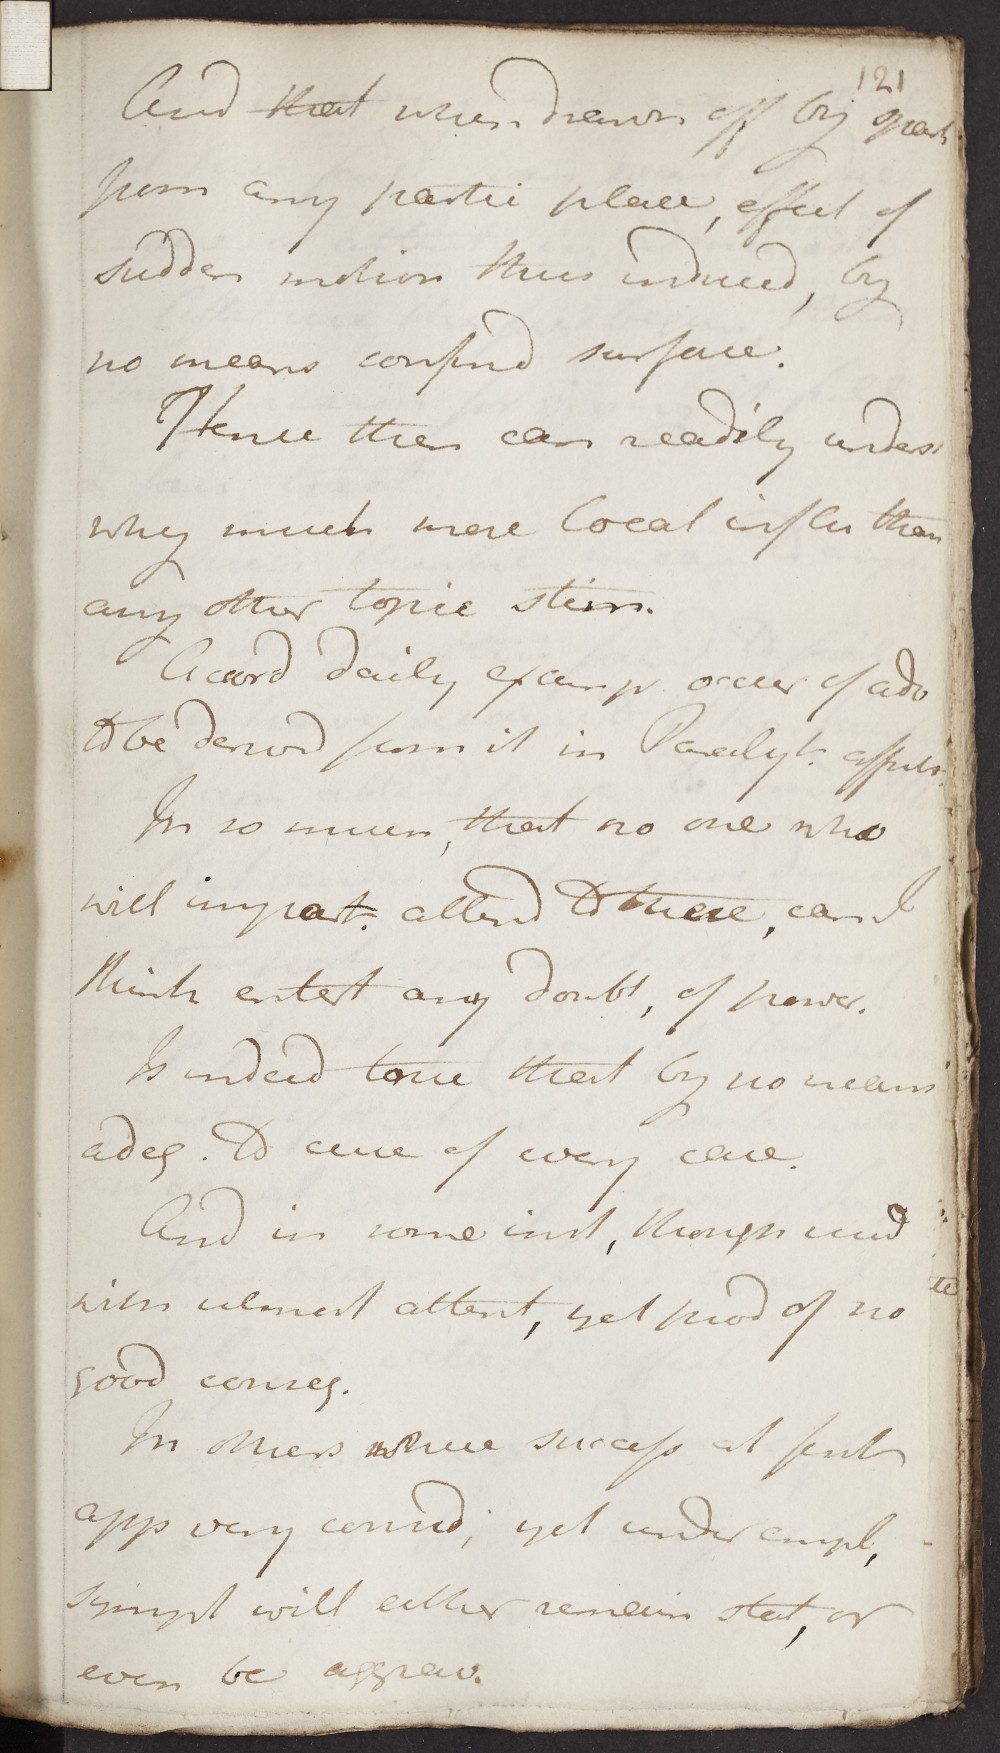 121
And that when drawn off by spark
from any partic place, effect of
sudden motion thus induced, by
no means confind surface.
Hence then can readily unders
why much more local influ than
any other topic stim.
Accord daily examp. occur of adv
to be derivd from it in Paralyt. affects
In so much, that no one who
will impart. attend to these, can I
think entert any doubt, of power.
Is indeed true that by no means
adeq. to cure of every case.
And in some inst, though used
with utmost attent, yet prod of no
good conseq.
In others where success at first
app very consid; yet under empl,
sympt will either remain stat, or
even be aggrav.